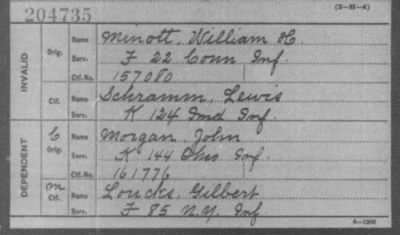 204735
(3-H-4)
INVALID
Orig.
Name Minott, William H.
Serv. F 22 Conn Inf.
Ctf. No. 157080
Ctf.
Name Schramm, Lewis
Serv. K 124 Ind Inf.
DEPENDENT
C
Orig.
Name Morgan, John
Serv. K 144 Ohio Inf.
Ctf. No. 161776
m
Ctf.
Name Loucks, Gilbert
Serv. F 85 N.Y. Inf